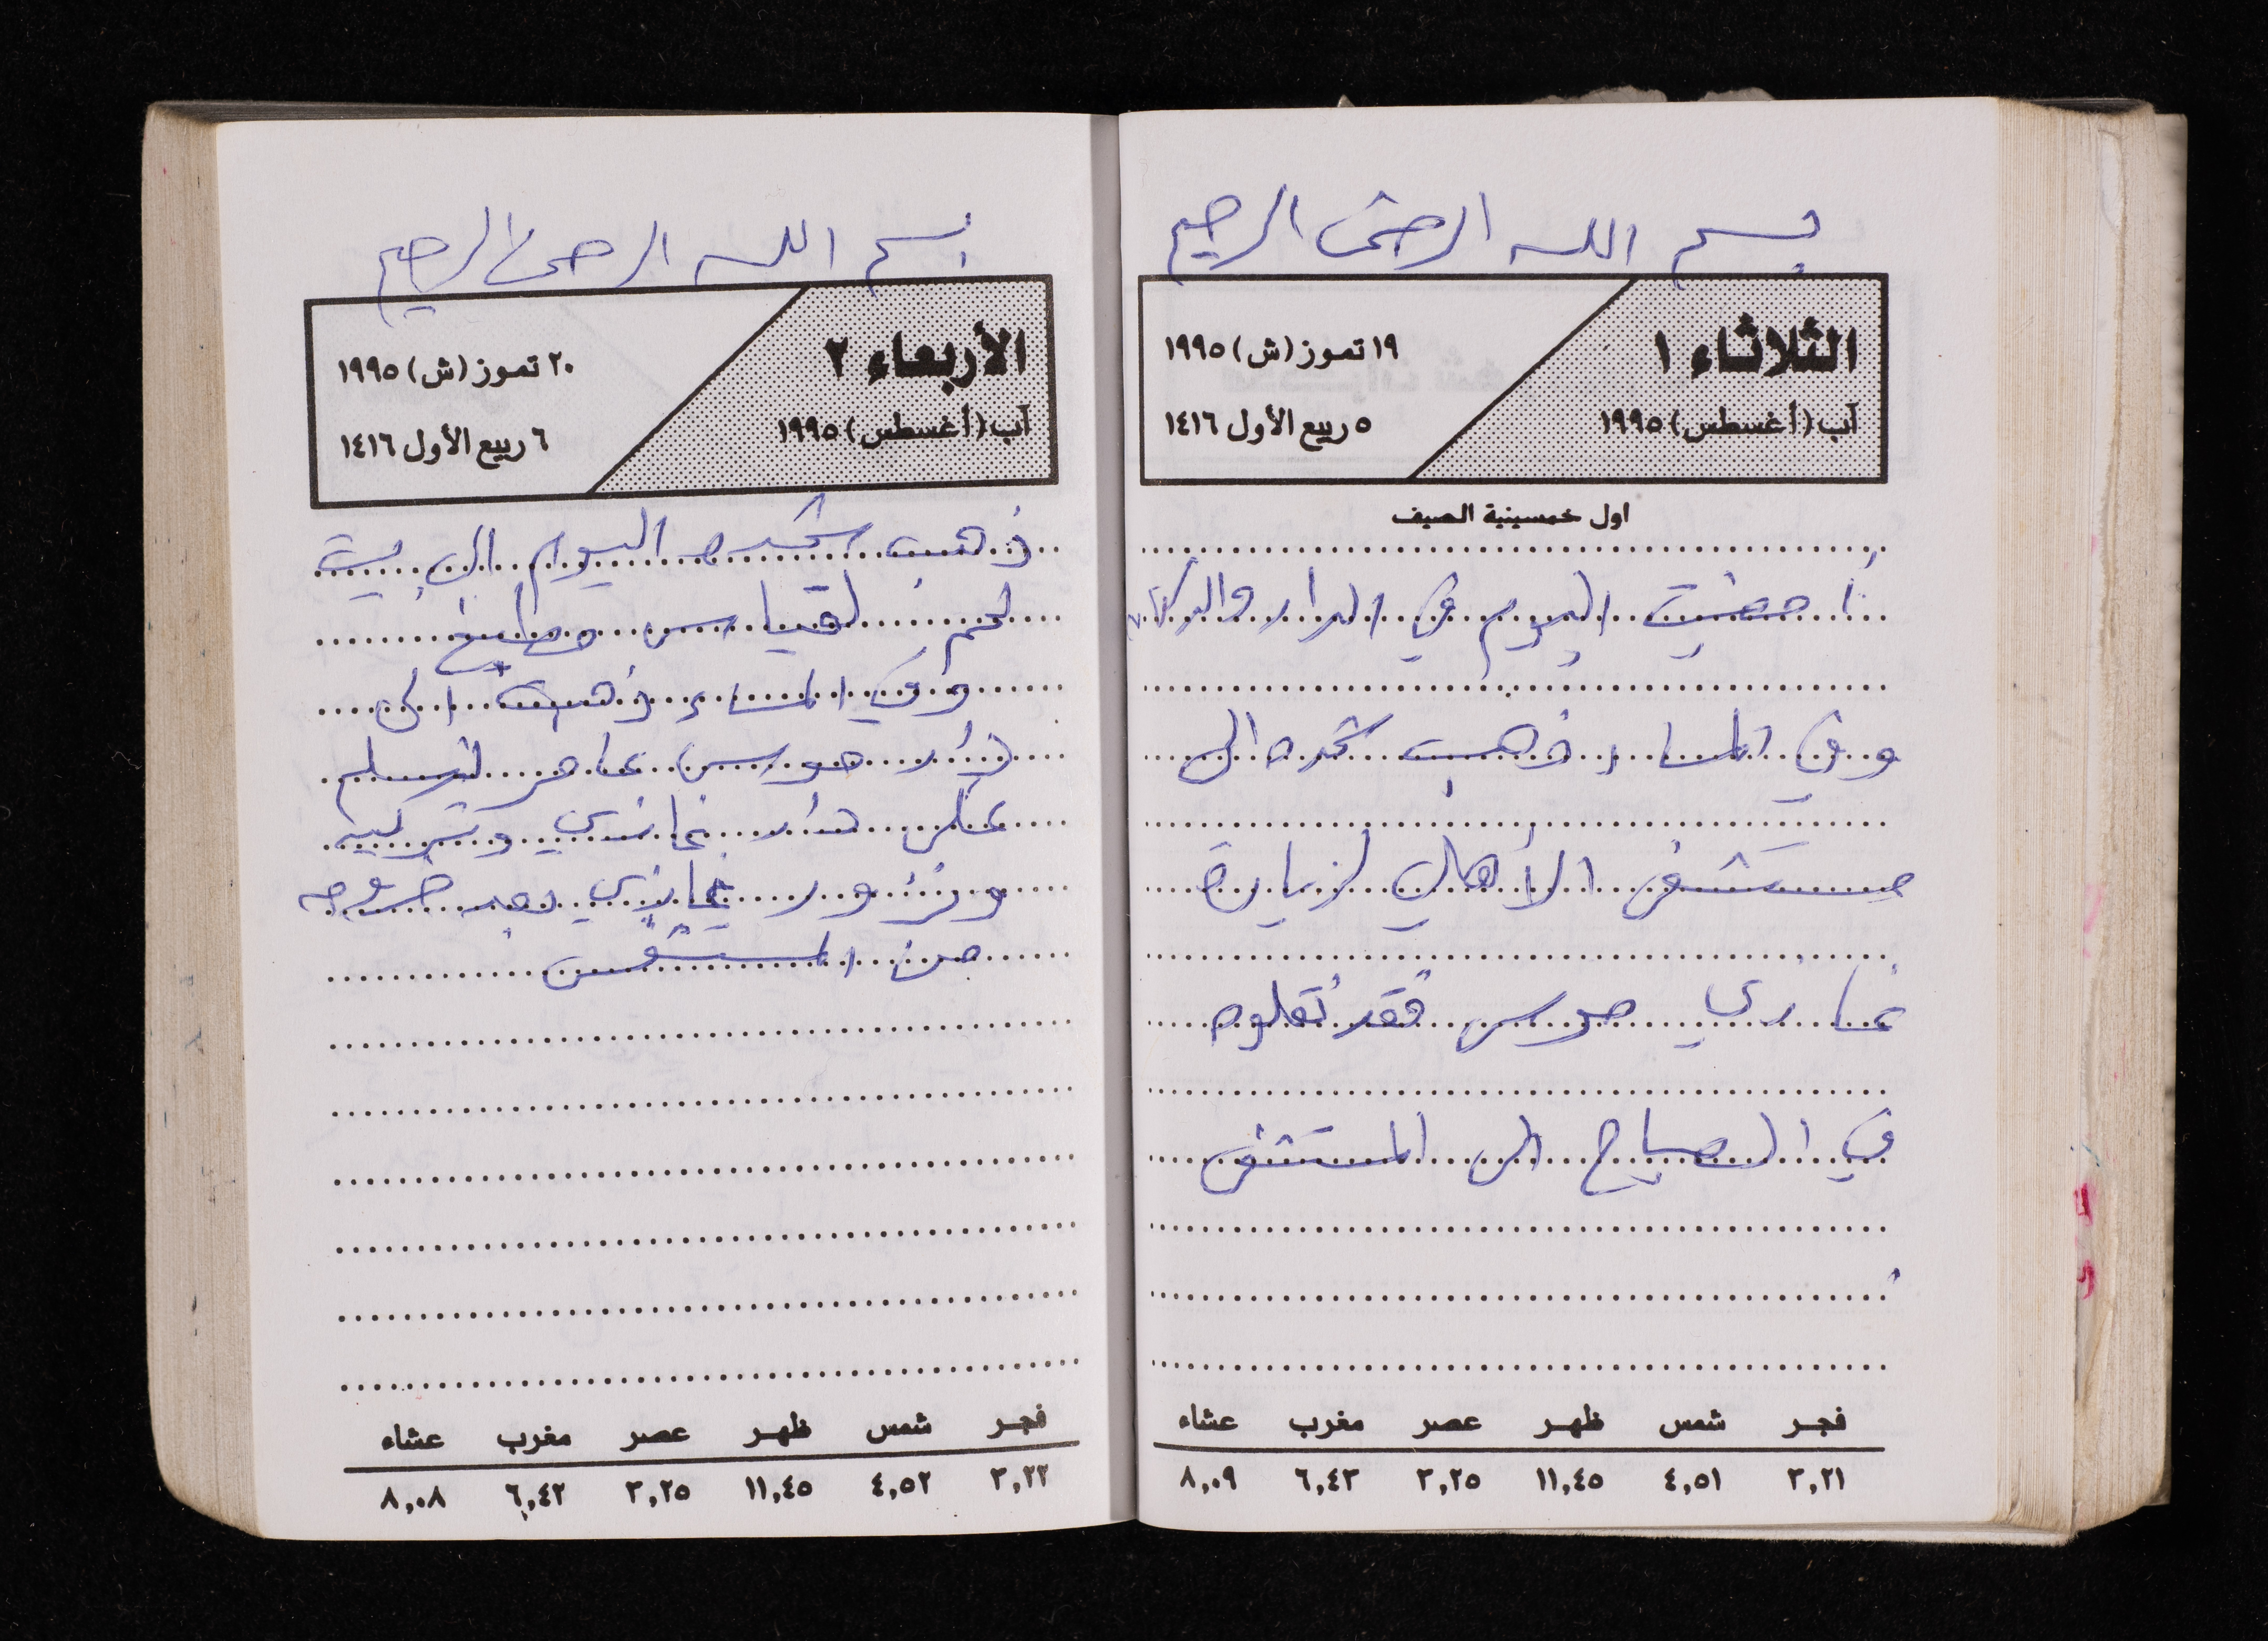 بسم الله الرحمن الرحيم
الثلاثاء ١
١٩ تموز (ش) ١٩٩٥
آب (أغسطس) ١٩٩٥
٥ ربيع الأول ١٤١٦
اول خمسينية الصيف
أمضيت اليوم في الدار والدكان
وفي المساء ذهبت شحده الى
مستشفى الأهلي لزيارة
غازي موسى فقد نقلوه
في الصباح الى المستشفى
فجر شمس ظهر عصر مغرب عشاء
٣,٢١ ٤,٥١ ١١,٤٥ ٣,٢٥ ٦,٤٣ ٨,٠٩
بسم الله الرحمن الرحيم
الأربعاء ٢
٢٠ تموز (ش) ١٩٩٥
آب (أغسطس) ١٩٩٥
٦ ربيع الأول ١٤١٦
ذهب شحده اليوم الى بيت
لحم لقياس مطبخ
وفي المساء ذهبت الى
دار موسى عامر لنسلم
على دار غازي وتركيه
ونزور غازي بعد خروجه
من المستشفى
فجر شمس ظهر عصر مغرب عشاء
٣,٢٢ ٤,٥٢ ١١,٤٥ ٣,٢٥ ٦,٤٢ ٨,٠٨